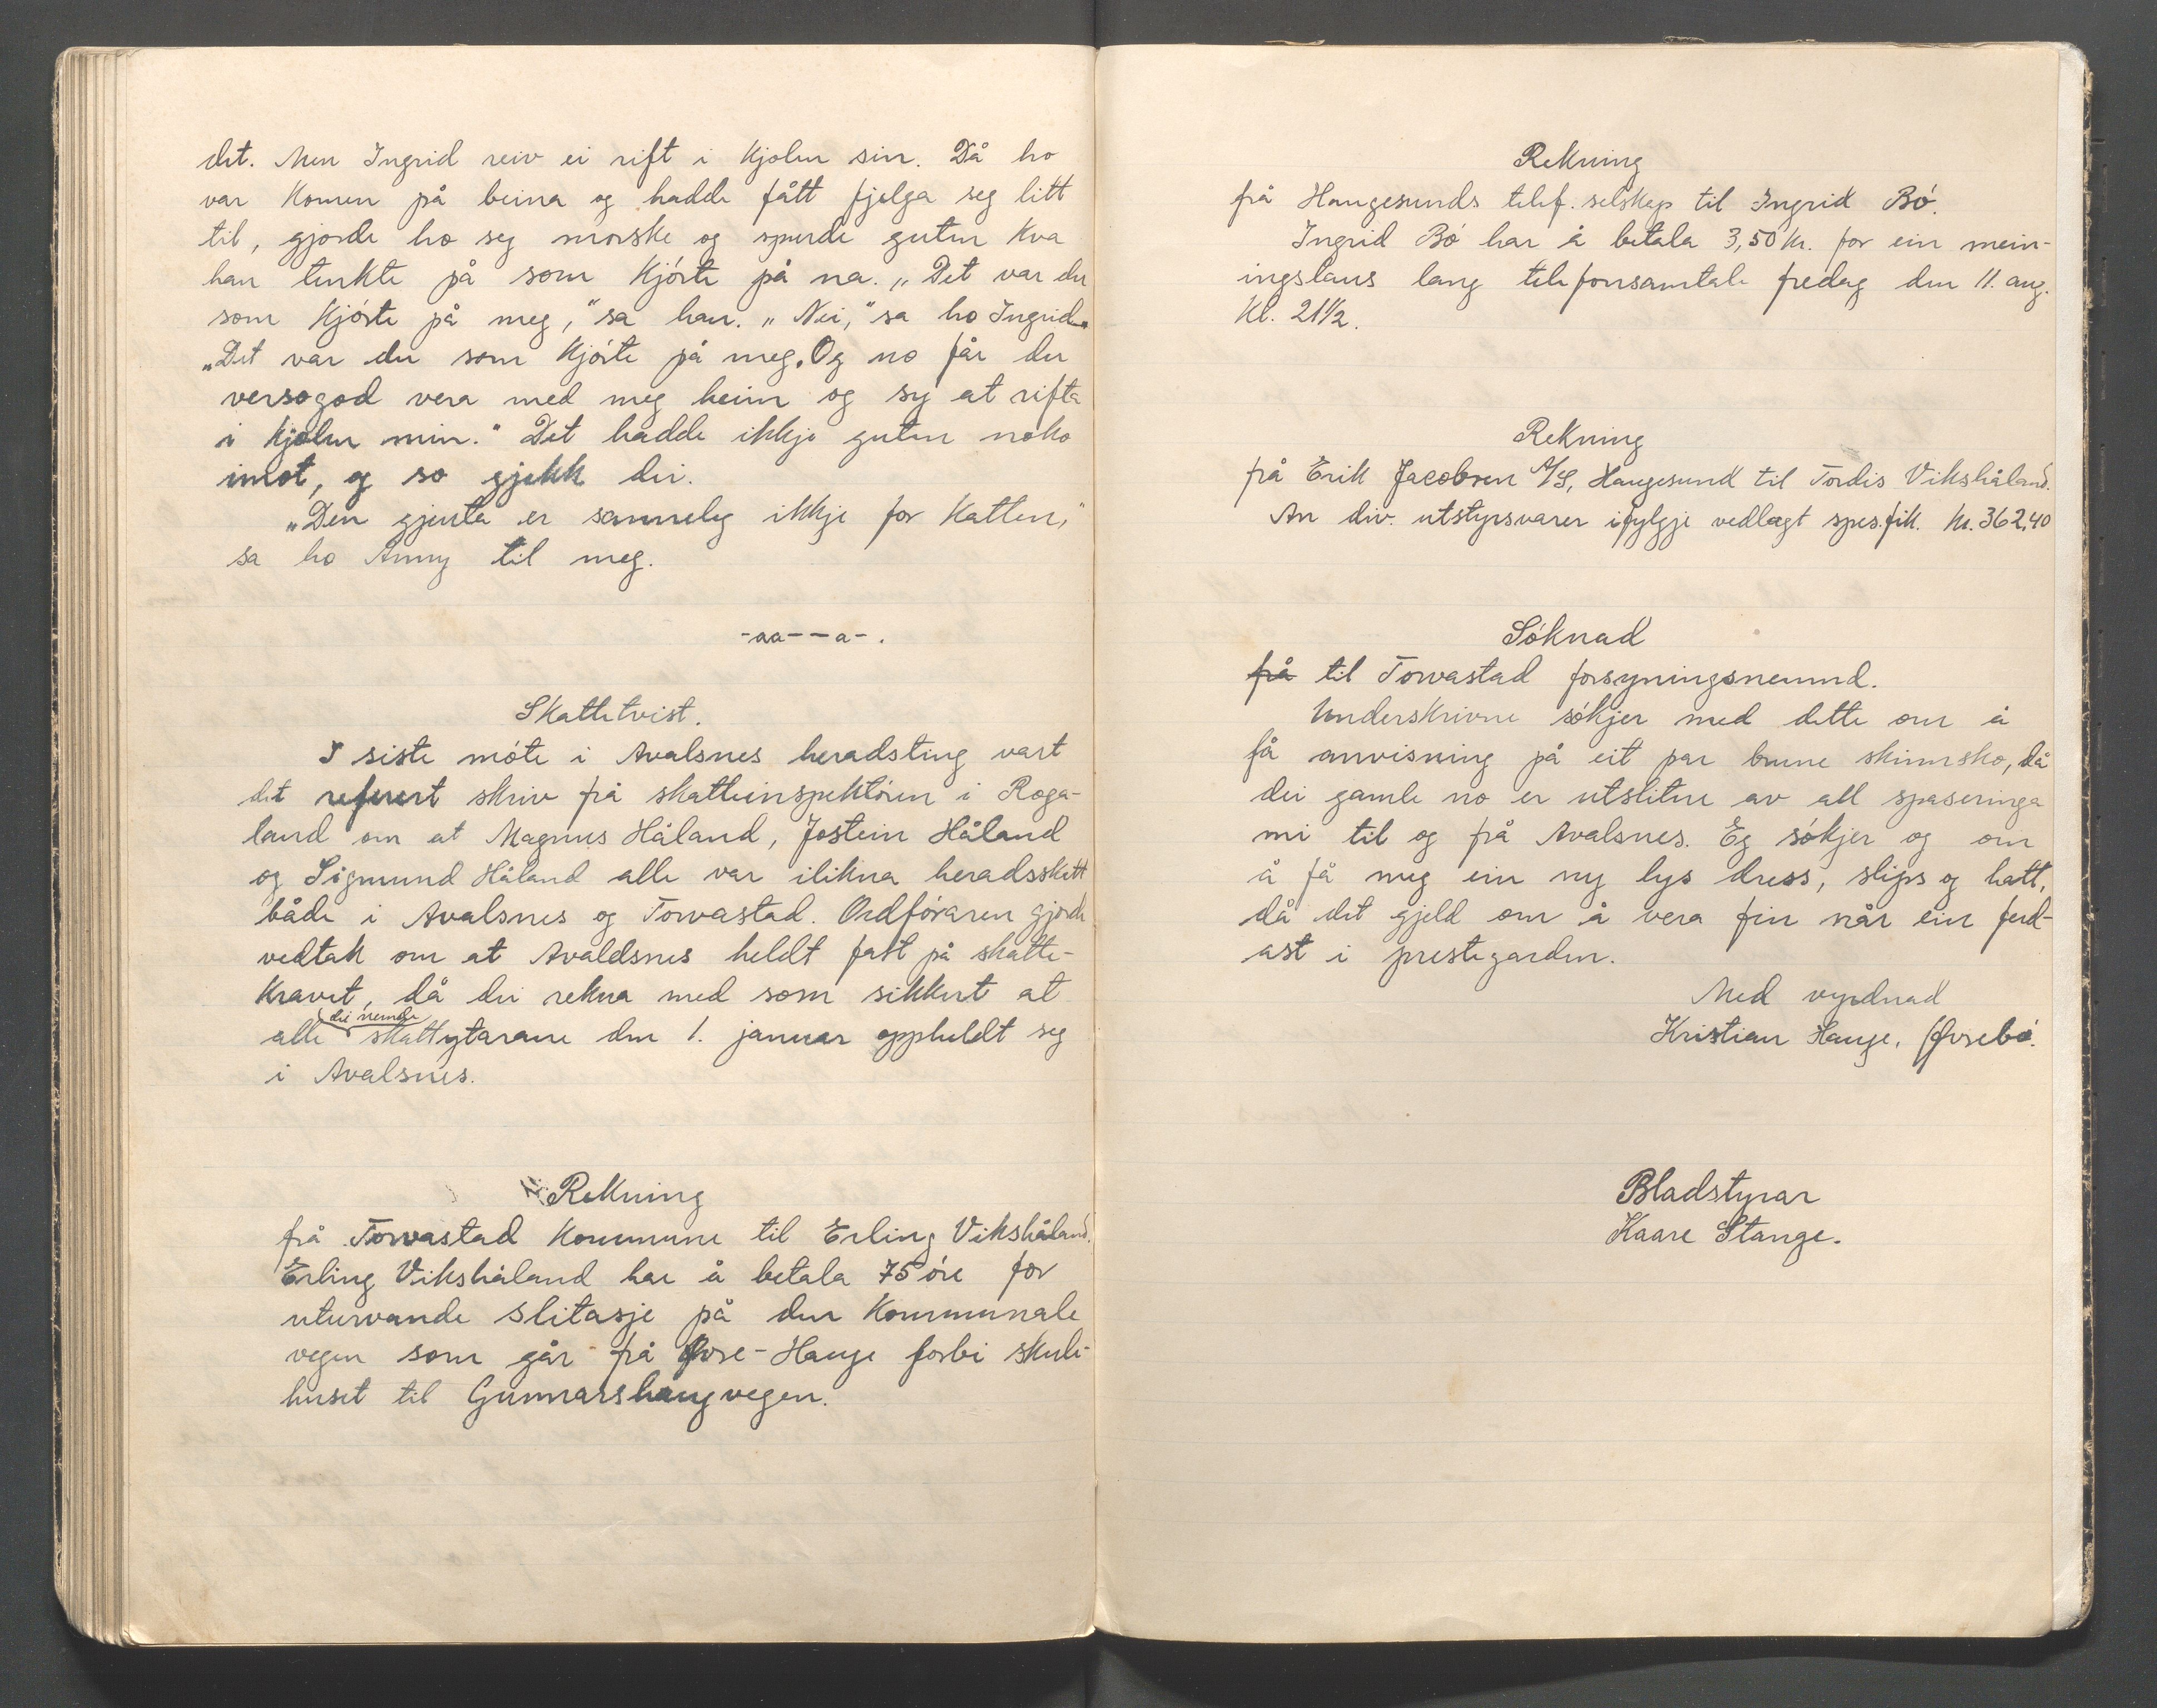 det. Men Ingrid reiv ei rift i kjolen sin. Då ho
var komen på beina og hadde fått fjelga seg litt
til, gjorde ho seg morske og spurde guten kva
han tenkte på som kjórte på na. „Det var du
som kjórte på meg," sa han. „Nei," sa ho Ingrid.
„Det var du som kjórte på meg. Og no får du
versogod vera med meg heim og sy at rifta
i kjolen min." Det hadde ikkje guten noko
imot, og so gjekk dei.
„Den gjenta er sanneleg ikkje for katten,"
sa ho Anny til meg.
-aa--a-.
Skattetvist.
I siste móte i Avalsnes heradsting vart
det referert skriv frå skatteinspektóren i Roga-
land om at Magnus Håland, Jostein Håland
og Sigmund Håland alle var ilikna heradsskatt
både i Avalsnes og Torvastad. Ordfóraren gjorde
vedtak om at Avaldsnes heldt fast på skatte-
kravet, då dei rekna med som sikkert at
dei nemde
alle skattytarane den 1. januar oppheldt seg
i Avalsnes.
Rekning
frå Torvastad kommune til Erling Vikshåland.
Erling Vikshåland har å betala 75 óre for
uturvande slitasje på den kommunale
vegen som går frå Øvre-Hauge forbi skule-
huset til Gunnarshaugvegen.
Rekning
frå Haugesunds telef. selskap til Ingrid Bó.
Ingrid Bó har å betala 3,50 kr. for ein mein-
ingslaus lang telefonsamtale fredag den 11. aug.
kl. 21½.
Rekning
frå Erik Jacobsen A/S, Haugesund til Tordis Vikshåland.
An div. utstyrsvarer ifylgje vedlagt spes.fik. kr. 362,40
Sóknad
frå til Torvastad forsyningsnemnd.
Underskrivne sókjer med dette om å
få anvisning på eit par brune skinnsko, då
dei gamle no er utslitne av all spaseringa
mi til og frå Avalsnes. Eg sókjer og om
å få meg ein ny lys dress, slips og hatt,
då det gjeld om å vera fin når ein ferd-
ast i prestegarden.
Med vyrdnad
Kristian Hauge, Øvrebó.
Bladstyrar
Kaare Stange.